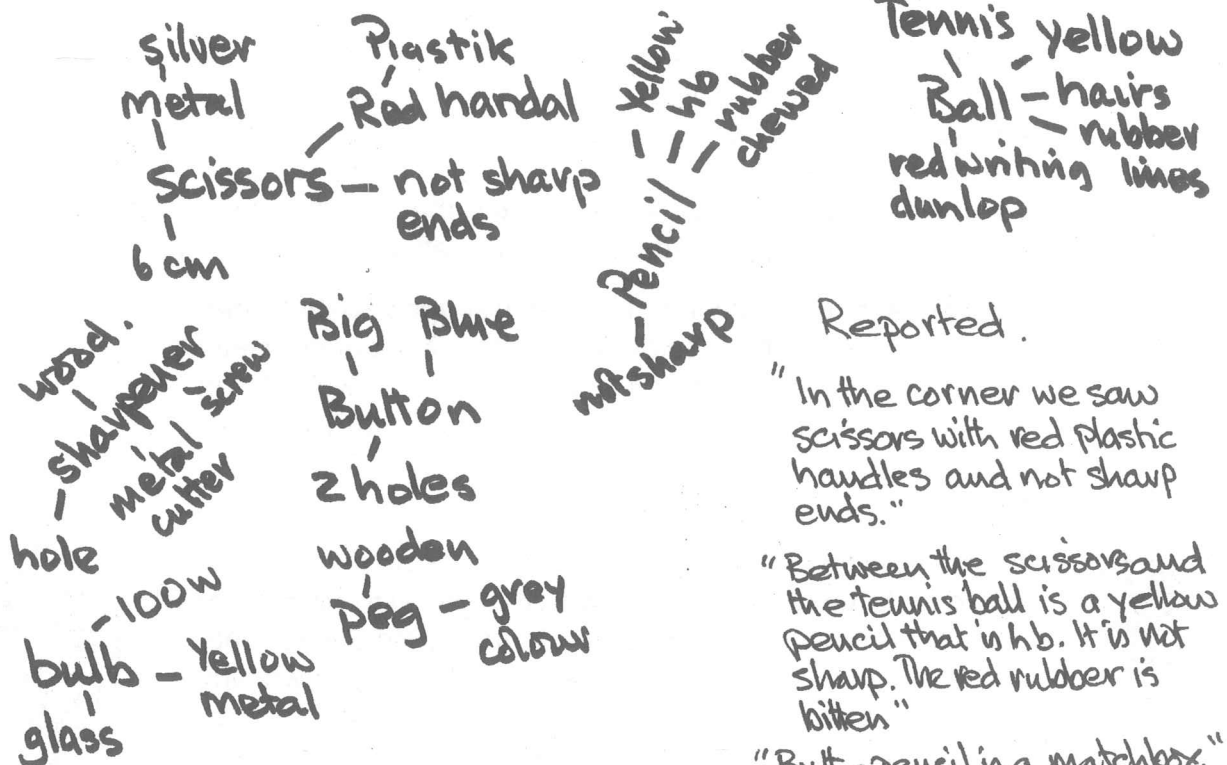 silver
metal
Scissors
6 cm
Plastik
Red handal
not sharp
ends
Yellow
hb
rubber
chewed
Pencil
not sharp
Tennis
yellow
Ball
hairs
rubber
lines
red writing
dunlop
wood.
sharpener
screw
metal
cutter
hole
Big Blue
Button
2 holes
wooden
peg
grey
colour
100w
bulb
Yellow
metal
glass
Reported.
"In the corner we saw
scissors with red plastic
handles and not sharp
ends."
"Between the scissors and
the tennis ball is a yellow
pencil that is hb. It is not
sharp. The red rubber is
bitten"
pencil is a matchbox."